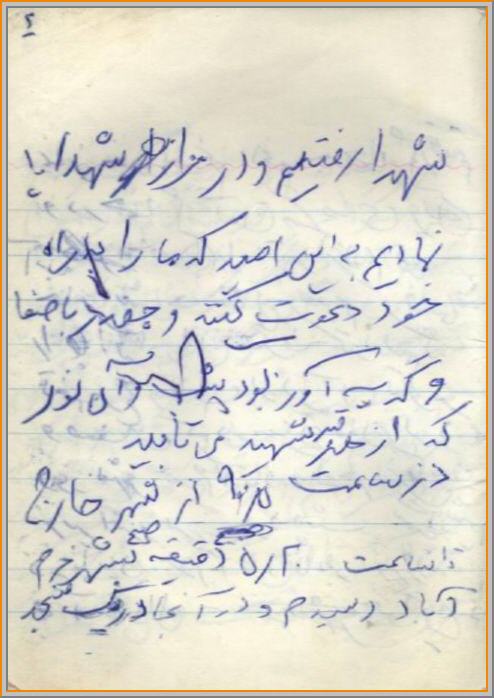 ۴
شهدا رفتیم و در مزار شهدا پا
نهادیم به این امید که ما را به راه
خود دعوت کنند و چقدر باصفا
و گریه آور بود و آن نور
که از قبر شهید می تابید
در ساعت از شهر خارج
تا ساعت ۵/۲۰ دقیقه صبح بشهر خرم
آباد رسیدیم و در آنجا در یک مسجد